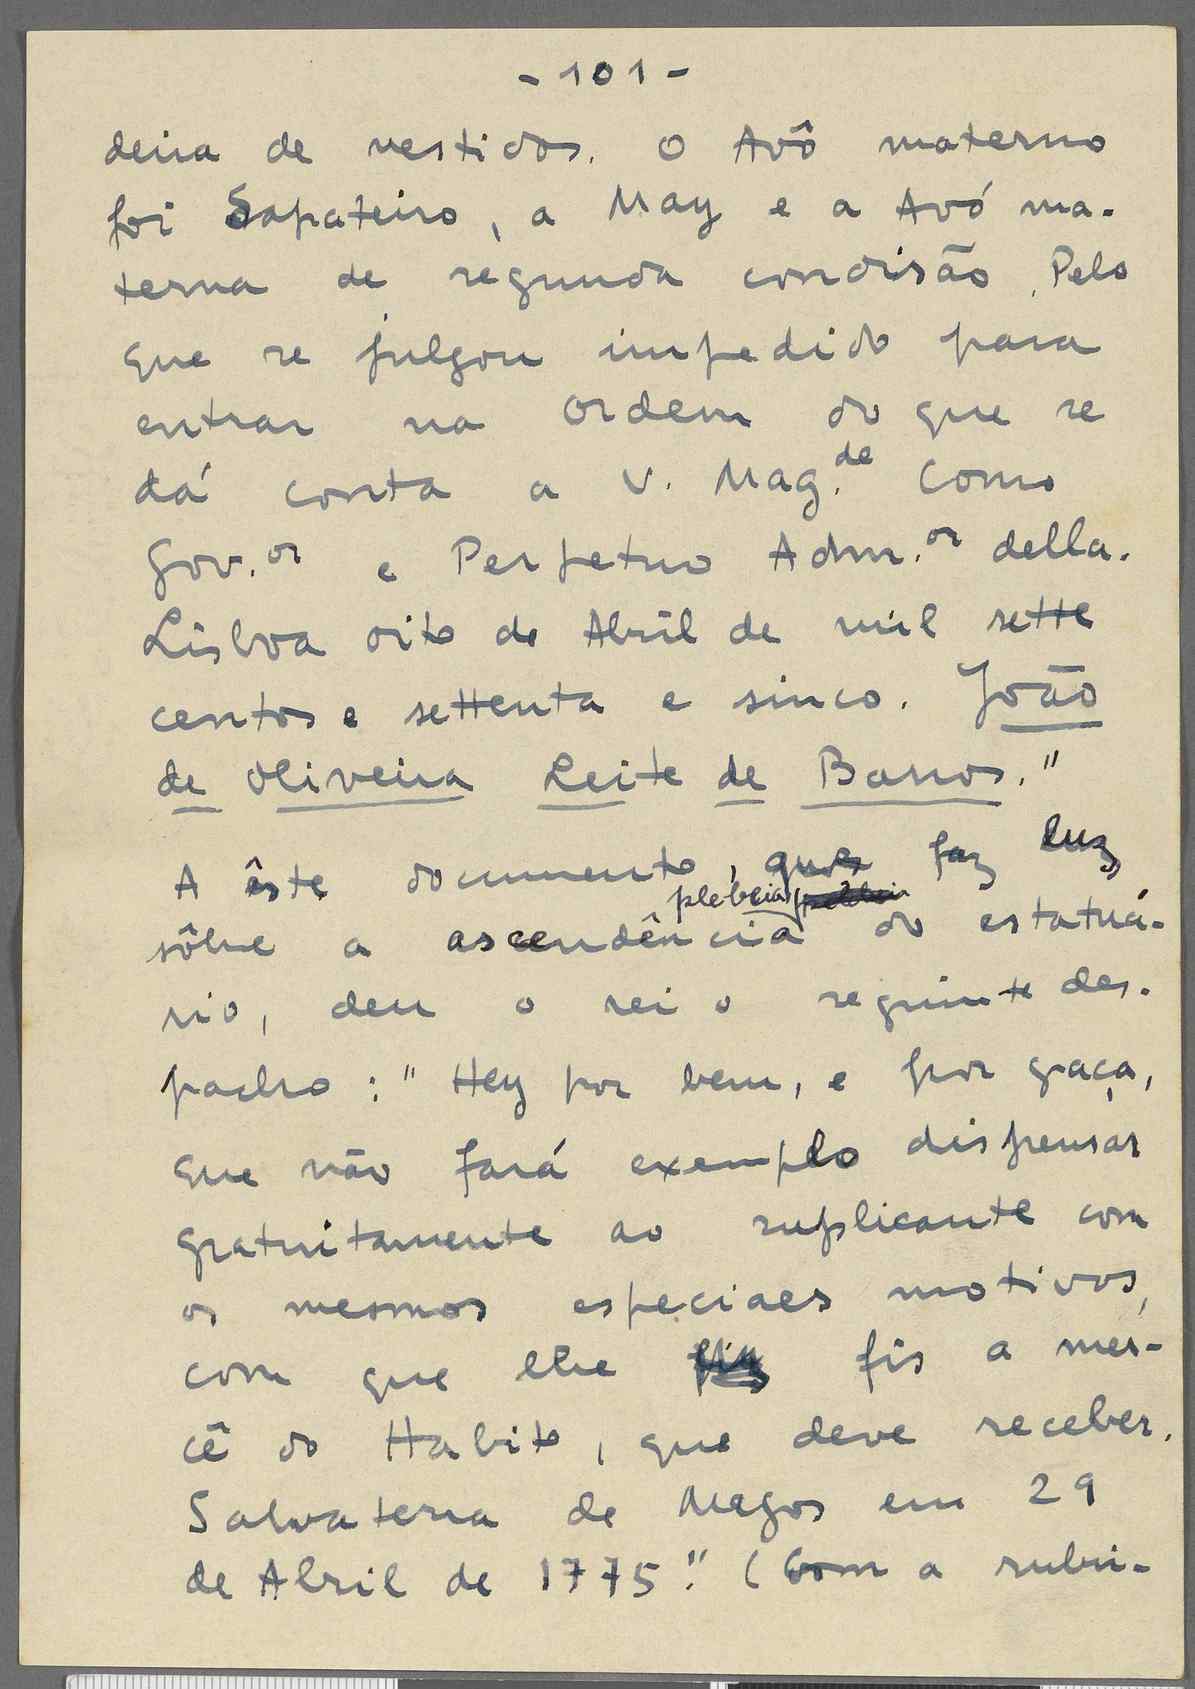 - 101 -
deira de vestidos. O Avô materno
foi Sapateiro, a May e a Avó ma-
terna de segunda condisão. Pelo
que se julgou impedido para
entrar na Ordem do que se
dá conta a V. Mag.de como
Gov.or e Perpetuo Adm.or della.
Lisboa oito de Abril de mil sette
centos e settenta e sinco. João
de Oliveira Leite de Barros."
A êste documento, que faz luz
plebeia
sôbre a ascendência do estatuá-
rio, deu o rei o seguinte des-
pacho: "Hey por bem, e por graça,
que não fará exemplo dispensar
gratuitamente ao suplicante com
os mesmos especiaes motivos,
com que lhe fis a mer-
cê do Habito, que deve receber.
Salvaterra de Magos em 29
de Abril de 1775." (Com a rubri-